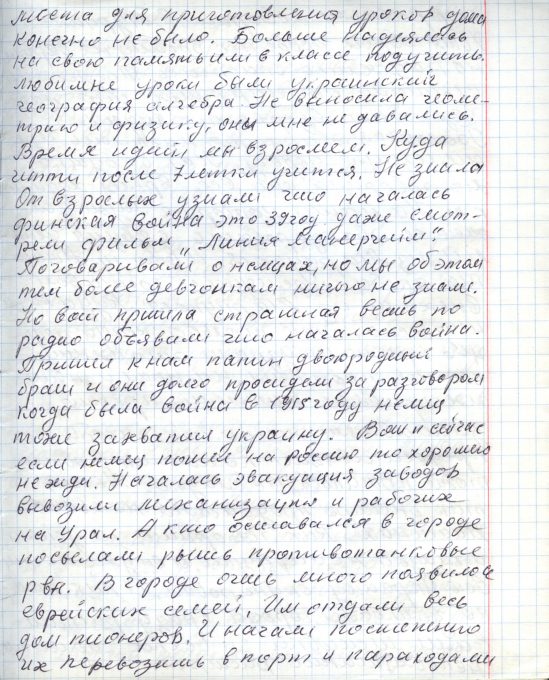 места для приготовления уроков дома
конечно не было. Больше надеялась
на свою память или в классе подучить.
любимые уроки были украинский
география алгебра. Не выносила геоме-
трию и физику, они мне не давались.
Время идет мы взрослеем. Куда
итти после 7летки учится. Не знала
От взрослых узнали что началась
финская война это 39 год даже смот-
рели фильм „Линия Манергейм".
Поговаривали о немцах, но мы об этом
тем более девчонкам ничего не знали.
Но вот пришла страшная весть по
радио объявили что началась война.
Пришел к нам папин двоюродный
брат и они долго просидели за разговором
когда была война в 1915 году немец
тоже захватил украину. Вот и сейчас
если немец пошел на россию то хорошего
не жди. Началась эвакуация заводов
вывозили механизация и рабочих
на Урал. А кто оставался в городе
посылали рыть противотанковые
рвы. В городе очень много появилось
еврейских семей, Им отдали весь
дом пионеров. И начали постепенно
их перевозить в порт и параходами